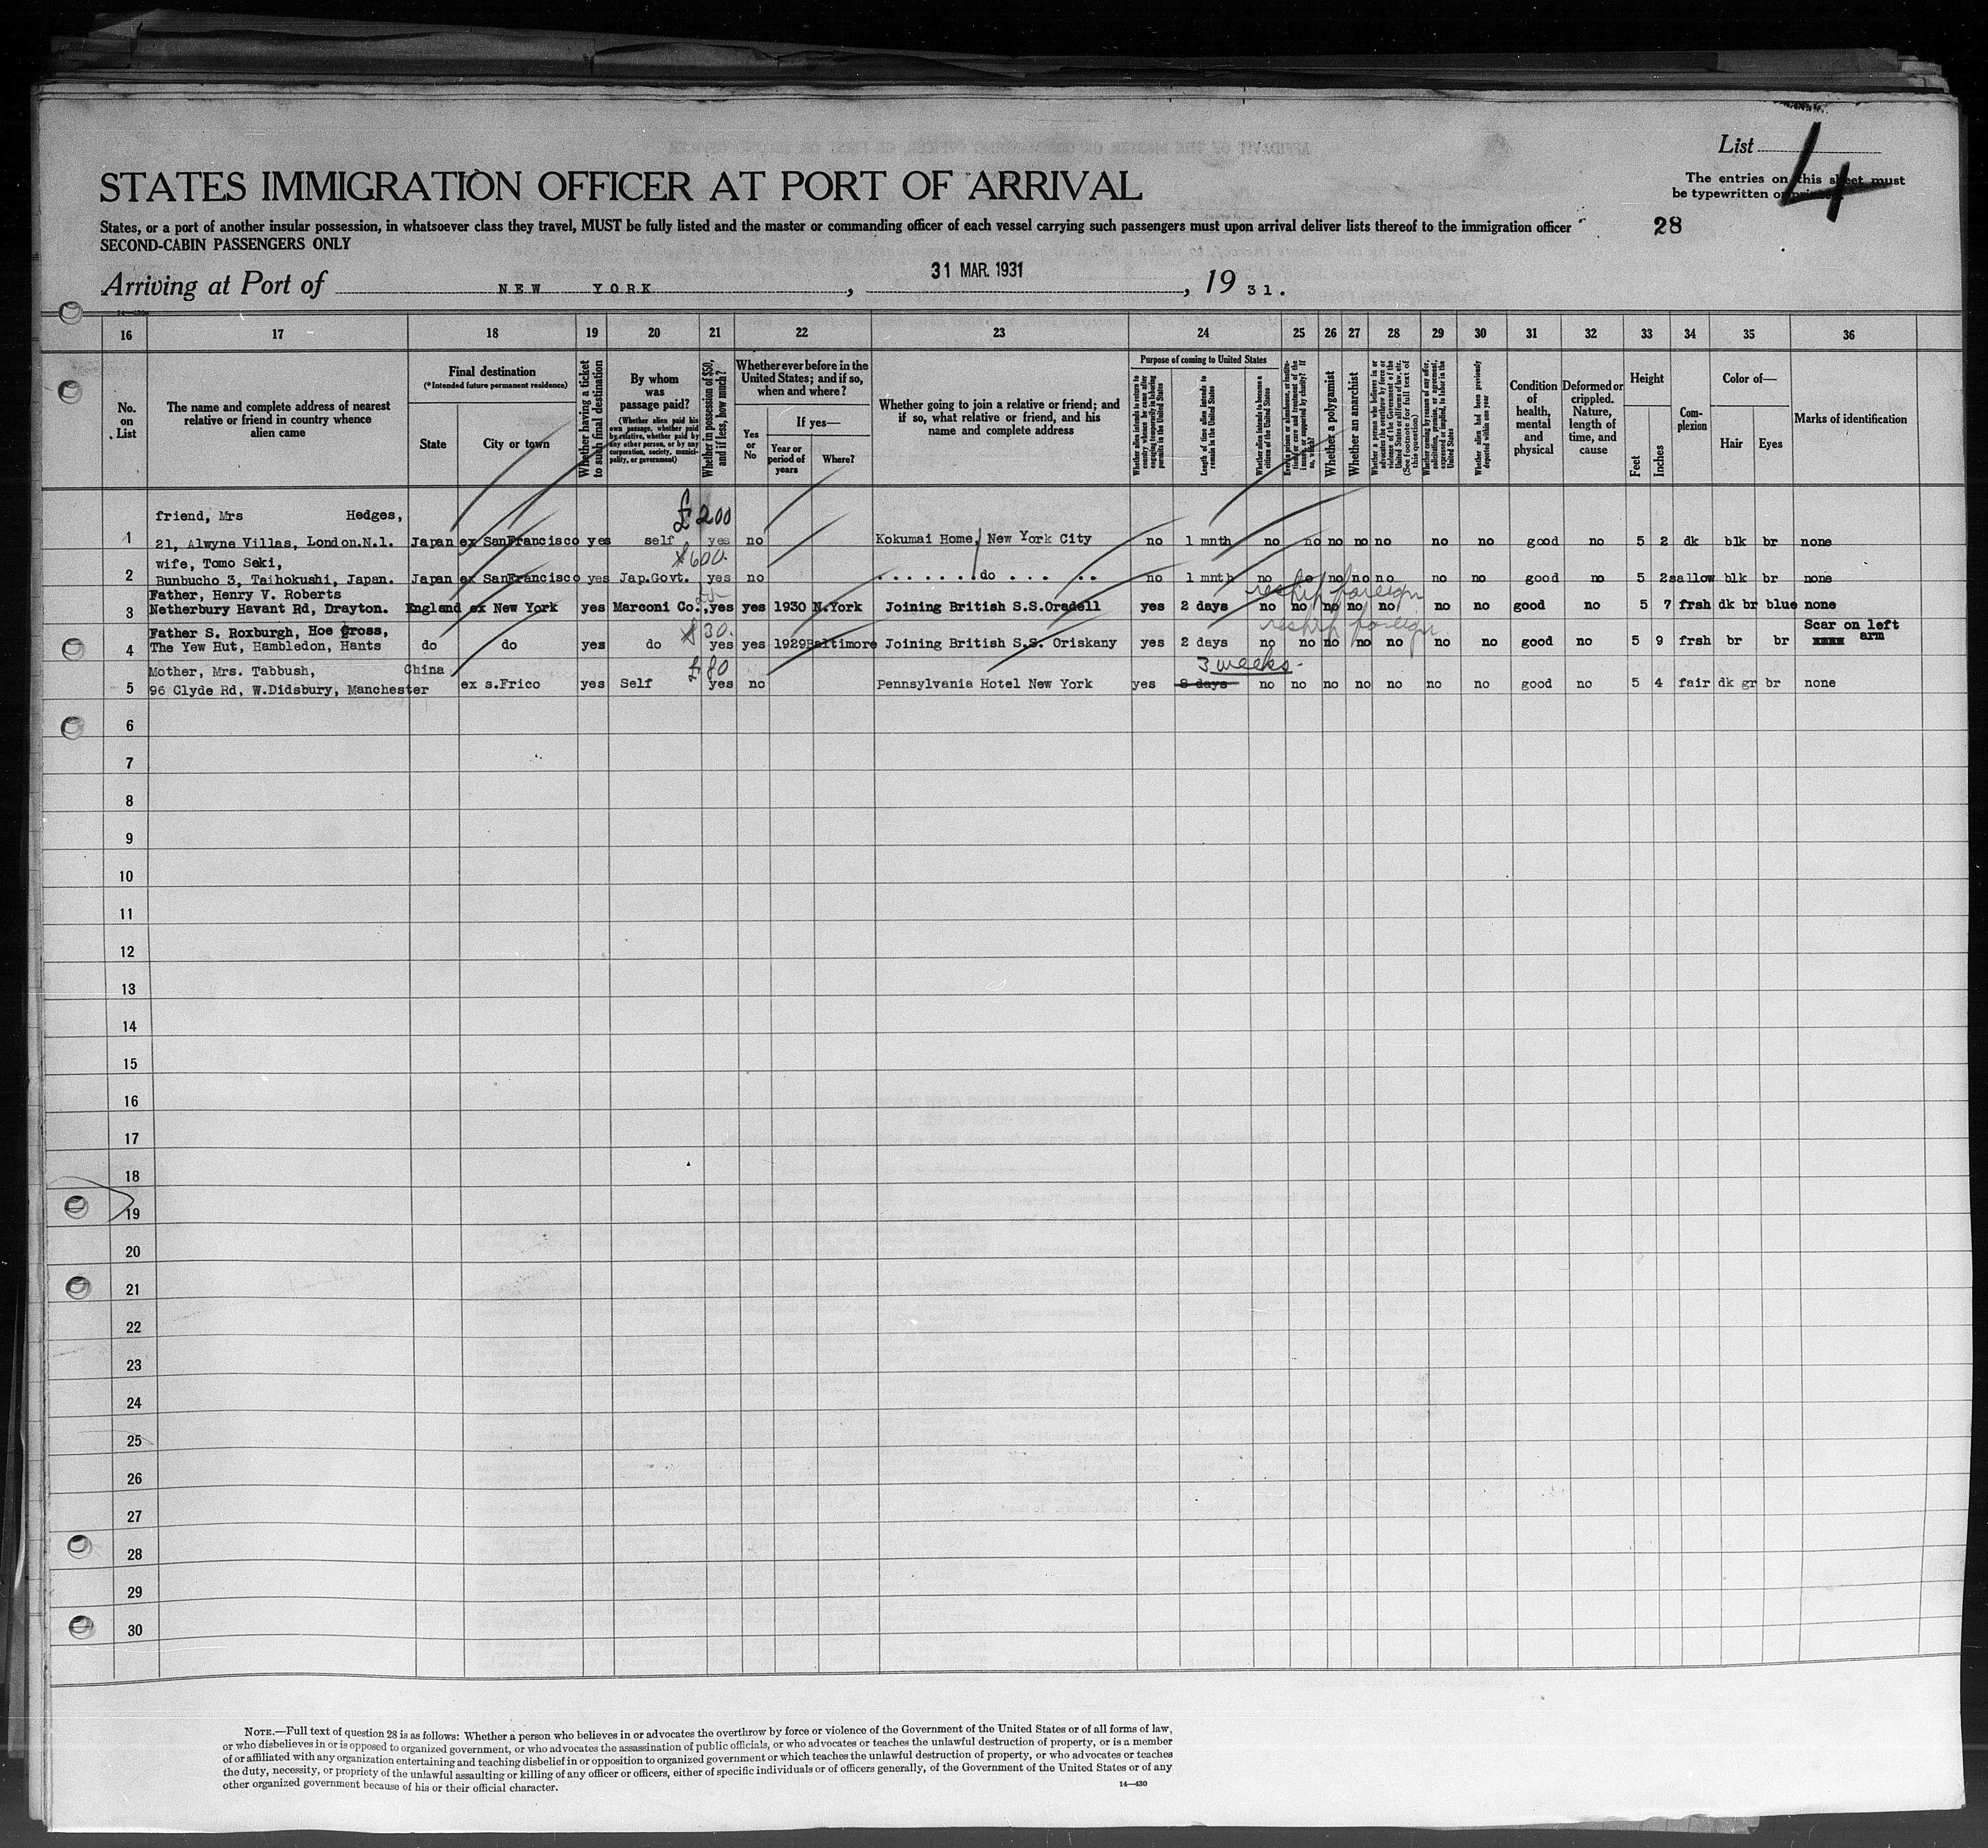 List 4
The entries on this sheet must
be typewritten or printed.
STATES IMMIGRATION OFFICER AT PORT OF ARRIVAL
States, or a port of another insular possession, in whatsoever class they travel, MUST be fully listed and the master or commanding officer of each vessel carrying such passengers must upon arrival deliver lists thereof to the immigration officer
28
SECOND-CABIN PASSENGERS ONLY
Arriving at Port of NEW YORK, 31 MAR. 1931, 19 31.
14—430
16 17 18 19 20 21 22 23 24 25 26 27 28 29 30 31 32 33 34 35 36
No. on List
The name and complete address of nearest relative or friend in country whence alien came
Final destination
(*Intended future permanent residence)
State
City or town
Whether having a ticket to such final destination
By whom was passage paid?
(Whether alien paid his own passage, whether paid by relative, whether paid by any other person, or by any corporation, society, municipality, or government)
Whether in possession of $50, and if less, how much?
Whether ever before in the United States; and if so, when and where?
Yes or No
If yes—
Year or period of years
Where?
Whether going to join a relative or friend; and if so, what relative or friend, and his name and complete address
Purpose of coming to United States
Whether alien intends to return to country whence he came after engaging temporarily in laboring pursuits in the United States
Length of time alien intends to remain in the United States
Whether alien intends to become a citizen of the United States
Whether a polygamist
Whether an anarchist
Whether a person who believes in or advocates the overthrow by force or violence of the Government of the United States or all forms of law, etc. (See footnote for full text of this question)
Whether coming by reason of any offer, solicitation, promise, or agreement, expressed or implied, to labor in the United States
Whether alien had been previously deported within one year
Condition of health, mental and physical
Deformed or crippled. Nature, length of time, and cause
Height
Feet
Inches
Complexion
Color of—
Hair
Eyes
Marks of identification
£200
friend, Mrs Hedges,
1 21, Alwyne Villas, London.N.1. Japan ex SanFrancisco yes self yes no Kokumai Home, New York City no 1 mnth no no no no no no no good no 5 2 dk blk br none
$600.
wife, Tomo Seki,
2 Bunbucho 3, Taihokushi, Japan. Japan ex SanFrancisco yes Jap.Govt. yes no do no 1 mnth no no no no no no no good no 5 2 sallow blk br none
Father, Henry V. Roberts
reship foreign
3 Netherbury Havant Rd, Drayton. England ex New York yes Marconi Co., yes yes 1930 N.York Joining British S.S.Oradell yes 2 days no no no no no no no good no 5 7 frsh dk br blue none
Father S. Roxburgh, Hoe Gross, $30. reship foreign Scar on left
4 The Yew Hut, Hambledon, Hants do do yes do yes yes 1929 Baltimore Joining British S.S. Oriskany yes 2 days no no no no no no no good no 5 9 frsh br br xxxx arm
Mother, Mrs. Tabbush, China £80 3 weeks-
5 96 Clyde Rd, W.Didsbury, Manchester ex s.Frico yes Self yes no Pennsylvania Hotel New York yes 8 days no no no no no no no good no 5 4 fair dk gr br none
6
7
8
9
10
11
12
13
14
15
16
17
18
19
20
21
22
23
24
25
26
27
28
29
30
NOTE.—Full text of question 28 is as follows: Whether a person who believes in or advocates the overthrow by force or violence of the Government of the United States or of all forms of law,
or who disbelieves in or is opposed to organized government, or who advocates the assassination of public officials, or who advocates or teaches the unlawful destruction of property, or is a member
of or affiliated with any organization entertaining and teaching disbelief in or opposition to organized government or which teaches the unlawful destruction of property, or who advocates or teaches
the duty, necessity, or propriety of the unlawful assaulting or killing of any officer or officers, either of specific individuals or of officers generally, of the Government of the United States or of any
other organized government because of his or their official character.
14—430